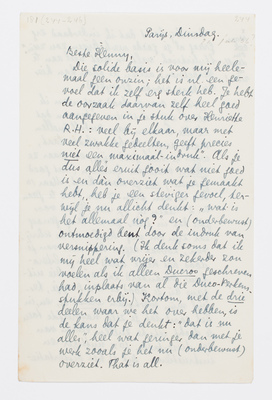 Parijs, Dinsdag.
Beste Henny,
Die solide basis is voor mij heele-
maal geen onzin; het is nl. een ge-
voel dat ik zelf erg sterk heb. Je hebt
de oorzaak daarvan zelf heel goed
aangegeven in je stuk over Henriette
R.H.: veel bij elkaar, maar met
veel zwakke gedeelten, geeft precies
niet een "maximaal-indruk". Als je
dus alles eruit gooit wat niet goed
is en dàn overziet wat je gemaakt
hebt, heb je een steviger gevoel, ter-
wijl je nu allicht denkt: "wat is
het allemaal nog?" en (onderbewust)
ontmoedigd bent door de indruk van
versnippering. (Ik denk soms dat ik
mij heel wat vrijer en zekerder zou
voelen als ik alleen Ducroo geschreven
had, inplaats van al die
stukken erbij.) Kortom, met de drie
deelen waar we het over hebben, is
de kans dat je denkt: "dat is nu
alles", heel wat geringer dan met je
werk zooals je het nu (onderbewust)
overziet. That is all.